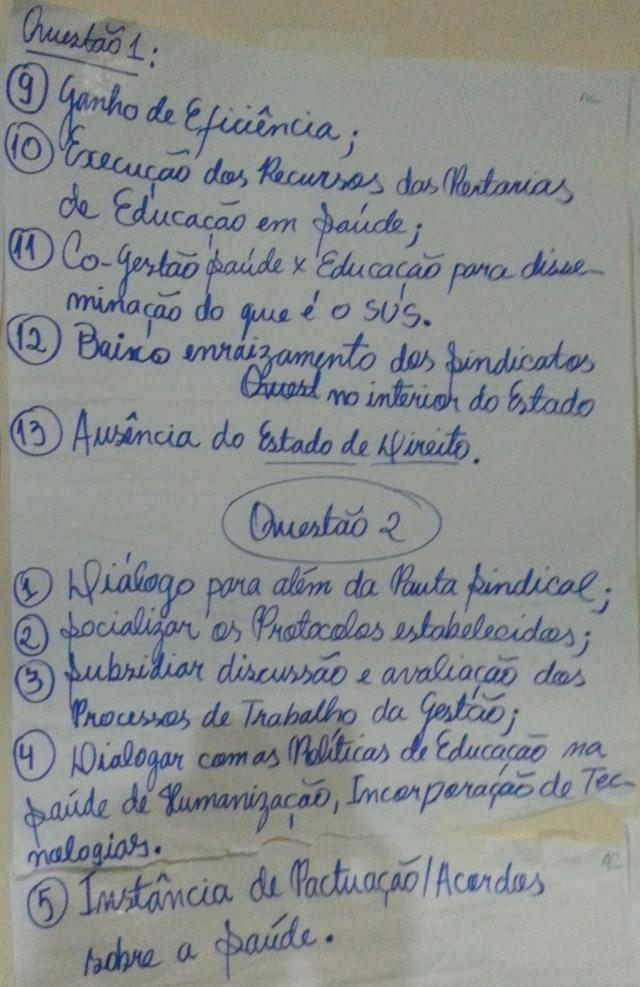 Questão 1:
9 Ganho de Eficiência;
10 Execução dos Recursos das Portarias
de Educação em Saúde;
11 Co-Gestão Saúde x Educação para disse-
minação do que é o SUS.
12 Baixo enraizamento dos Sindicatos
Quest no interior do Estado
13 Ausência do Estado de Direito.
Questão 2
1 Diálogo para além da Pauta Sindical;
2 Socializar os Protocolos estabelecidos;
3 Subsidiar discussão e avaliação dos
Processos de Trabalho da Gestão;
4 Dialogar com as Políticas de Educação na
Saúde de Humanização, Incorporação de Tec-
nologias.
5 Instância de Pactuação/Acordos
sobre a Saúde.